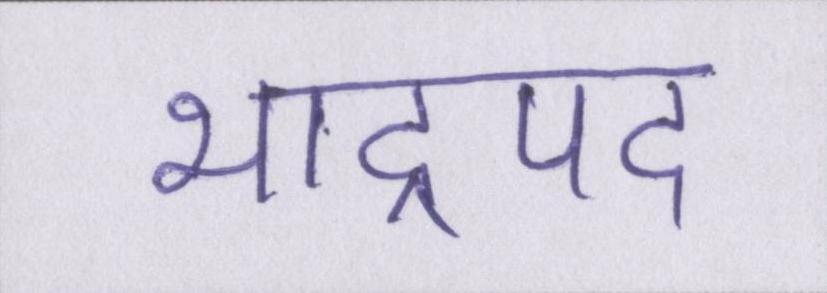 भाद्रपद